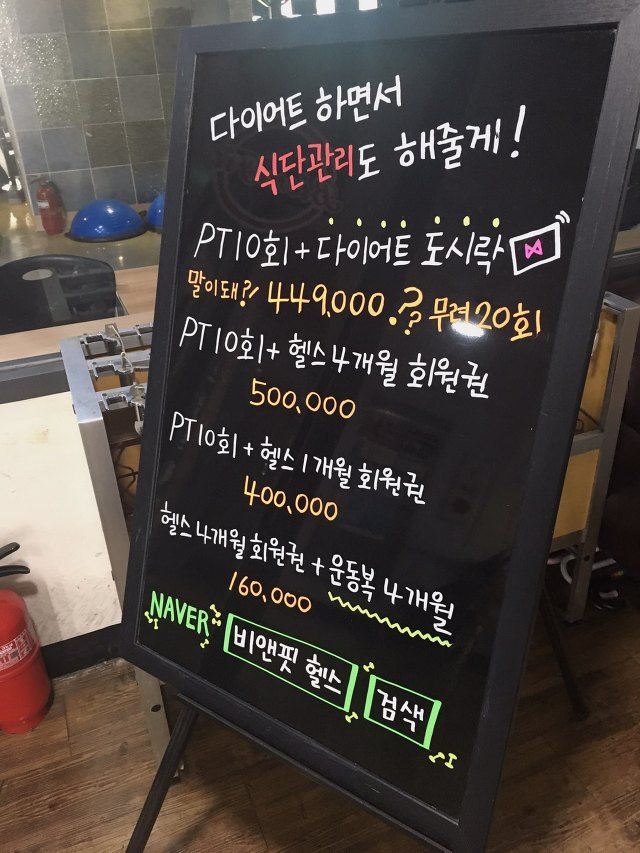 다이어트 하면서
식단관리도 해줄게!
PT10회 + 다이어트 도시락
말이돼?! 449,000.? 무려 20회
PT10회 + 헬스 4개월 회원권
500,000
PT10회 + 헬스 1개월 회원권
400,000
헬스 4개월 회원권 + 운동복 4개월
160,000
NAVER 비앤핏 헬스 검색